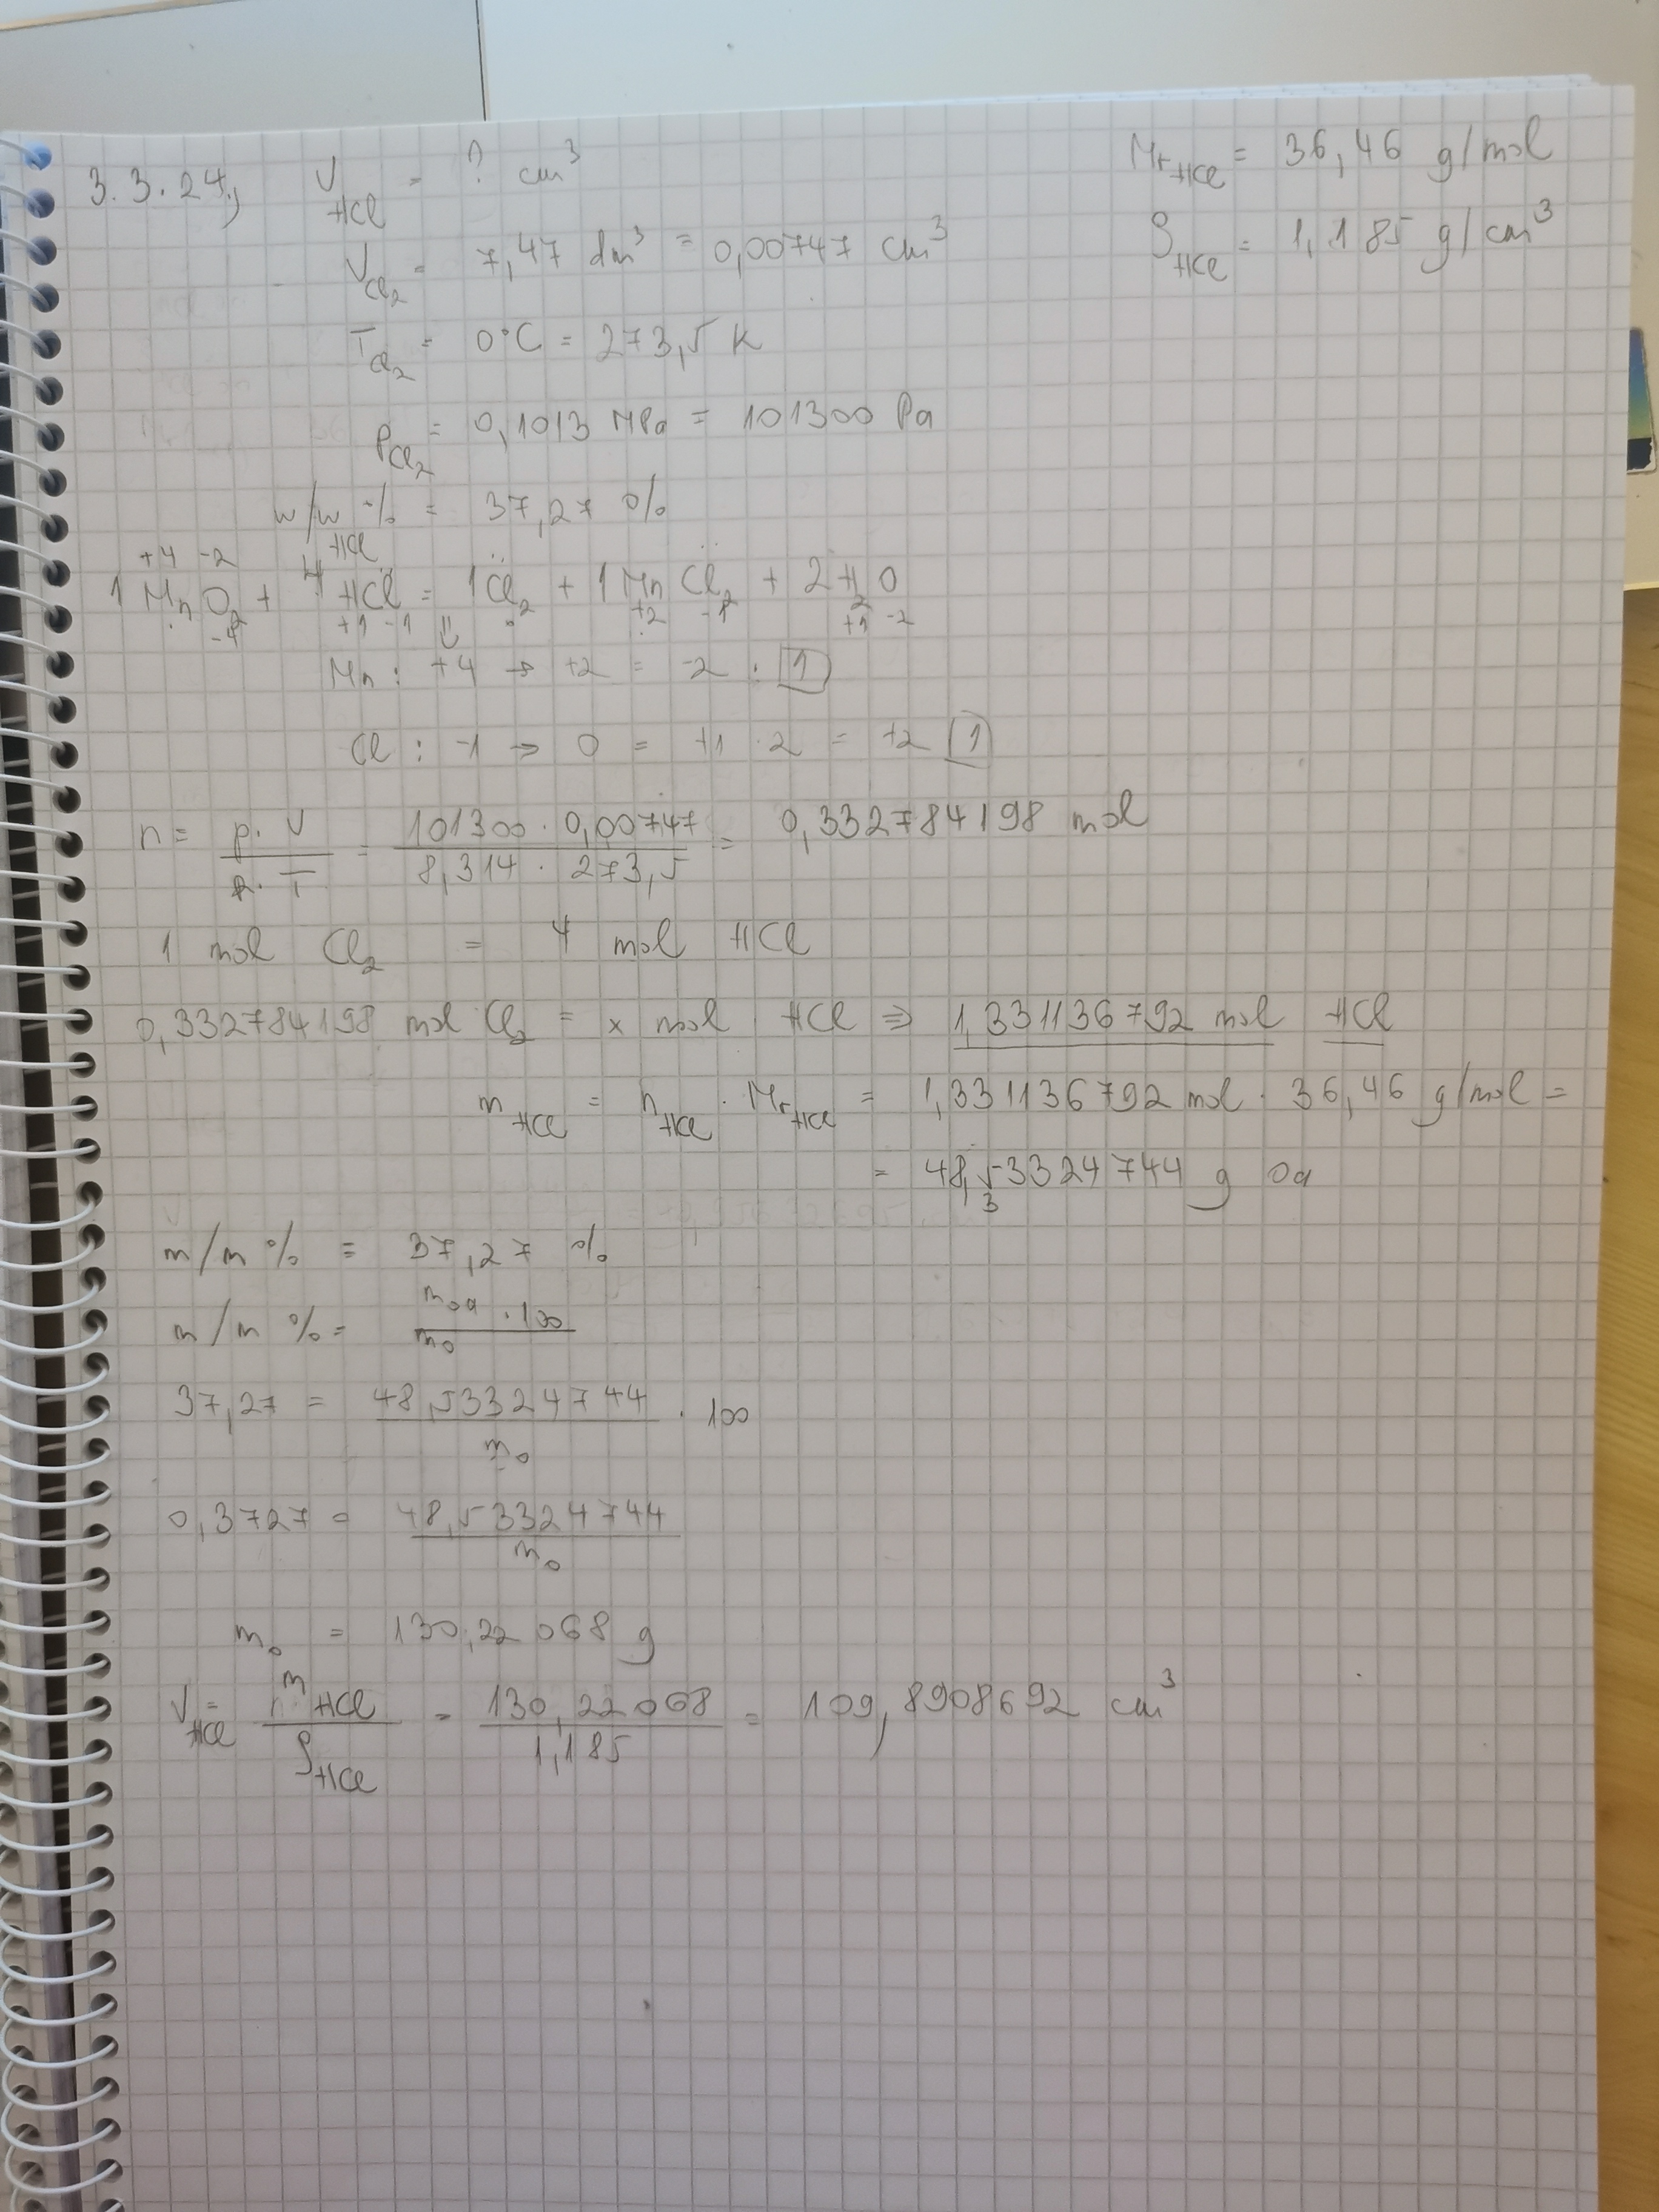 3.3.24.) V HCl = ? cm³
Mr HCl = 36,46 g/mol
V Cl₂ = 7,47 dm³ = 0,00747 cm³
ρ HCl = 1,185 g/cm³
T Cl₂ = 0°C = 273,5 K
p Cl₂ = 0,1013 MPa = 101300 Pa
w/w % HCl = 37,27 %
+4 -2
1 MnO₂ + 4 HCl = 1Cl₂ + 1 MnCl₂ + 2 H₂O
-4 +1 -1 +2 -1 +1 -2
Mn : +4 → +2 = -2 · 1
Cl : -1 → 0 = +1 · 2 = +2 1
n = p · V / R · T = 101300 · 0,00747 / 8,314 · 273,5 = 0,332784198 mol
1 mol Cl₂ = 4 mol HCl
0,332784198 mol Cl₂ = x mol HCl ⇒ 1,331136792 mol HCl
m HCl = n HCl · Mr HCl = 1,331136792 mol · 36,46 g/mol =
= 48,533324744 g oa
3
m/m % = 37,27 %
m/m % = m oa · 100 / m o
37,27 = 48,53324744 / m o · 100
0,3727 = 48,53324744 / m o
m o = 130,22068 g
V HCl = m HCl / ρ HCl = 130,22068 / 1,185 = 109,8908692 cm³